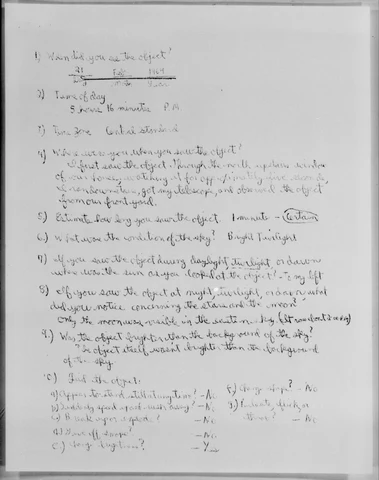 1) When did you see the object?
21 Feb. 1967
Day Month Year
2) Time of day
5 hours 16 minutes P.M
3) Time Zone Central standard
4) Where were you when you saw the object?
I first saw the object through the north upstairs window
of our house, watching it for approximately five seconds,
I ran downstairs, got my telescope, and observed the object
from our front yard.
5) Estimate how long you saw the object. 1 minute - Certain
6) What was the condition of the sky? Bright Twilight
7) If you saw the object during daylight, twilight or dawn
where was the sun as you looked at the object? - To my left
8) If you saw the object at night, twilight, or dawn what
did you notice concerning the stars and the moon?
Only the moon was visible in the eastern sky.
9.) Was the object brighter than the background of the sky?
The object itself wasn't brighter than the background
of the sky.
10.) Did the object:
A) Appear to stand still at any time? - No
B) Suddenly speed up and rush away? - No
C) Break up - No
D) Give off smoke? - No
E.) Change brightness? - Yes
F.) Change shape? - No
G.) Flicker, or
- No